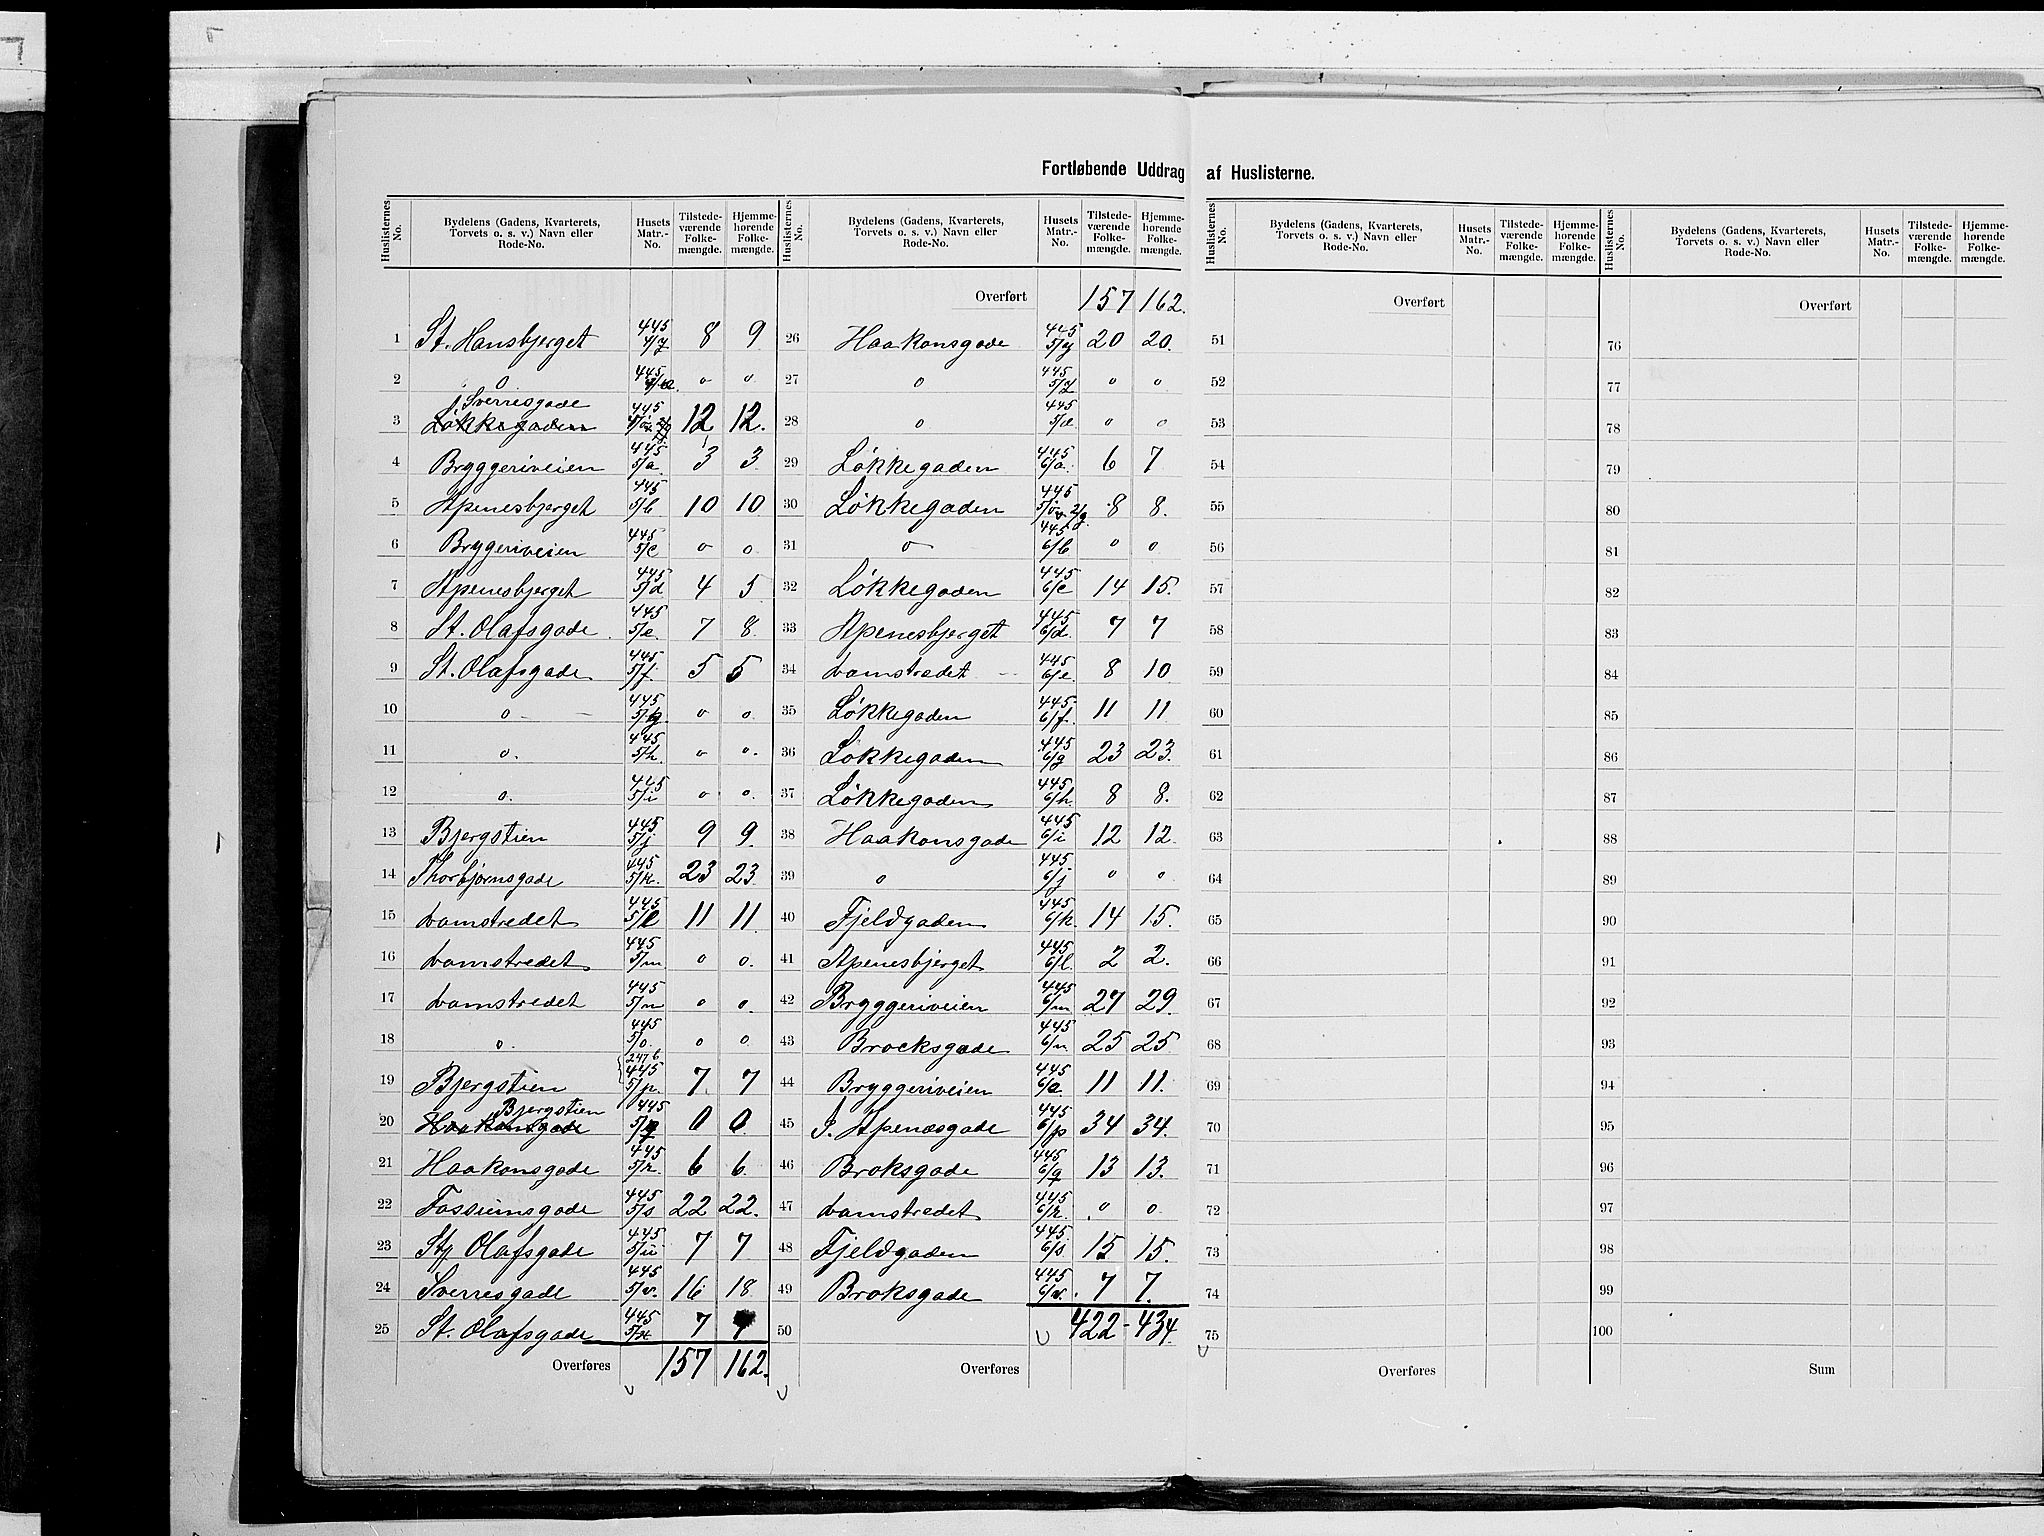 Fortløbende Uddrag af Huslisterne.
Huslisternes No. | Bydelens (Gadens, Kvarterets, Torvets o. s. v.) Navn eller Rode-No. | Husets Matr.-No. | Tilstedeværende Folkemængde. | Hjemmehørende Folkemængde.
1 St. Hansbjerget 445 4/z 8 9
2 o 445 4/æ. o o
3 Sverresgade Løkkegaden 445 12 12.
4 Bryggeriveien 445 5/a 3 3
5 Apenesbjerget 445 5/b 10 10
6 Bryggeriveien 445 5/c o o
7 Apenesbjerget 445 5/d 4 5
8 St. Olafsgade 445 5/e 7 8
9 St. Olafsgade 445 5/f 5 5
10 o 445 5/g o o
11 o. 445 5/h. o o.
12 o. 445 5/i o o.
13 Bjergstien 445 5/j 9 9.
14 Thorbjørnsgade 445 5/k. 23 23
15 Damstredet 445 5/l 11 11
16 Damstredet 445 5/m o o.
17 Damstredet 445 5/n o o.
18 o. 445 5/o. o o
19 Bjergstien 247 b 445 5/p. 7 7
20 Bjergstien Haakonsgade 445 5/q 0 0
21 Haakonsgade 445 5/r. 6 6.
22 Fossumsgade 445 5/s 22 22.
23 St. Olafsgade 445 5/u 7 7
24 Sverresgade 445 5/v. 16 18
25 St. Olafsgade 445 5/x 7
Overføres 157 162.
Huslisternes No. | Bydelens (Gadens, Kvarterets, Torvets o. s. v.) Navn eller Rode-No. | Husets Matr.-No. | Tilstedeværende Folkemængde. | Hjemmehørende Folkemængde.
Overført 157 162.
26 Haakonsgade 445 5/y 20 20.
27 o 445 5/z o o
28 o 445 5/æ o o
29 Løkkegaden 445 6/a. 6 7
30 Løkkegaden 445 5/ø 8 8.
31 o 445 6/b o o
32 Løkkegaden 445 6/c 14 15.
33 Apenesbjerget 445 6/d. 7 7
34 Damstredet 445 6/e. 8 10
35 Løkkegaden 445 6/f. 11 11
36 Løkkegaden 445 6/g 23 23.
37 Løkkegaden 445 6/h. 8 8.
38 Haakonsgade 445 6/i 12 12.
39 o 445 6/j o o
40 Fjeldgaden 445 6/k. 14 15.
41 Apenesbjerget 445 6/l. 2 2.
42 Bryggeriveien 445 6/m 27 29.
43 Brocksgade 445 6/n 25 25.
44 Bryggeriveien 445 6/o 11 11.
45 Apenæsgade 445 6/p 34 34.
46 Broksgade 445 6/q 13 13.
47 Damstredet 445 6/r. o o
48 Fjeldgaden 445 6/s 15 15.
49 Broksgade 445 7 7.
50 422 - 434
Overføres
Huslisternes No. | Bydelens (Gadens, Kvarterets, Torvets o. s. v.) Navn eller Rode-No. | Husets Matr.-No. | Tilstedeværende Folkemængde. | Hjemmehørende Folkemængde.
Overført
51
52
53
54
55
56
57
58
59
60
61
62
63
64
65
66
67
68
69
70
71
72
73
74
75
Overføres
Huslisternes No. | Bydelens (Gadens, Kvarterets, Torvets o. s. v.) Navn eller Rode-No. | Husets Matr.-No. | Tilstedeværende Folkemængde. | Hjemmehørende Folkemængde.
Overført
76
77
78
79
80
81
82
83
84
85
86
87
88
89
90
91
92
93
94
95
96
97
98
99
100
Sum